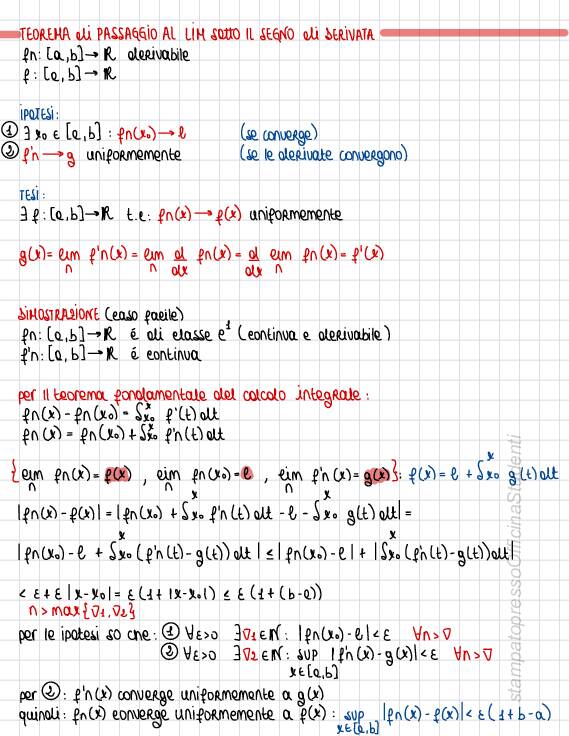 TEOREMA di PASSAGGIO AL LIM sotto IL SEGNO di DERIVATA
fn: [a,b]→ℝ derivabile
f: [a,b]→ℝ
IPOTESI:
① ∃ x₀ ∈ [a,b] : fn(x₀)→l (se converge)
② f'n→g uniformemente (se le derivate convergono)
TESI:
∃ f: [a,b]→ℝ t.c: fn(x)→f(x) uniformemente
g(x)= lim_n f'n(x) = lim_n d/dx fn(x) = d/dx lim_n fn(x) = f'(x)
DIMOSTRAZIONE (caso facile)
fn: [a,b]→ℝ é di classe C¹ (continua e derivabile)
f'n: [a,b]→ℝ é continua
per il teorema fondamentale del calcolo integrale:
fn(x) - fn(x₀) = ∫x₀^x f'(t) dt
fn(x) = fn(x₀) + ∫x₀^x f'n(t) dt
{lim_n fn(x) = f(x) , lim_n fn(x₀) = l , lim_n f'n(x) = g(x)}: f(x) = l + ∫x₀^x g(t) dt
|fn(x) - f(x)| = |fn(x₀) + ∫x₀^x f'n(t) dt - l - ∫x₀^x g(t) dt| =
|fn(x₀) - l + ∫x₀^x (f'n(t) - g(t)) dt| ≤ |fn(x₀) - l| + |∫x₀^x (f'n(t) - g(t)) dt|
< ε + ε |x - x₀| = ε (1 + |x - x₀|) ≤ ε (1 + (b - a))
n > max{∇1, ∇2}
per le ipotesi so che: ① ∀ε>0 ∃∇1∈ℕ: |fn(x₀) - l| < ε ∀n>∇
② ∀ε>0 ∃∇2∈ℕ: sup x∈[a,b] |f'n(x) - g(x)| < ε ∀n>∇
per ②: f'n(x) converge uniformemente a g(x)
quindi: fn(x) converge uniformemente a f(x) : sup x∈[a,b] |fn(x) - f(x)| < ε (1 + b - a)
stampatopressoOfficinaStudenti